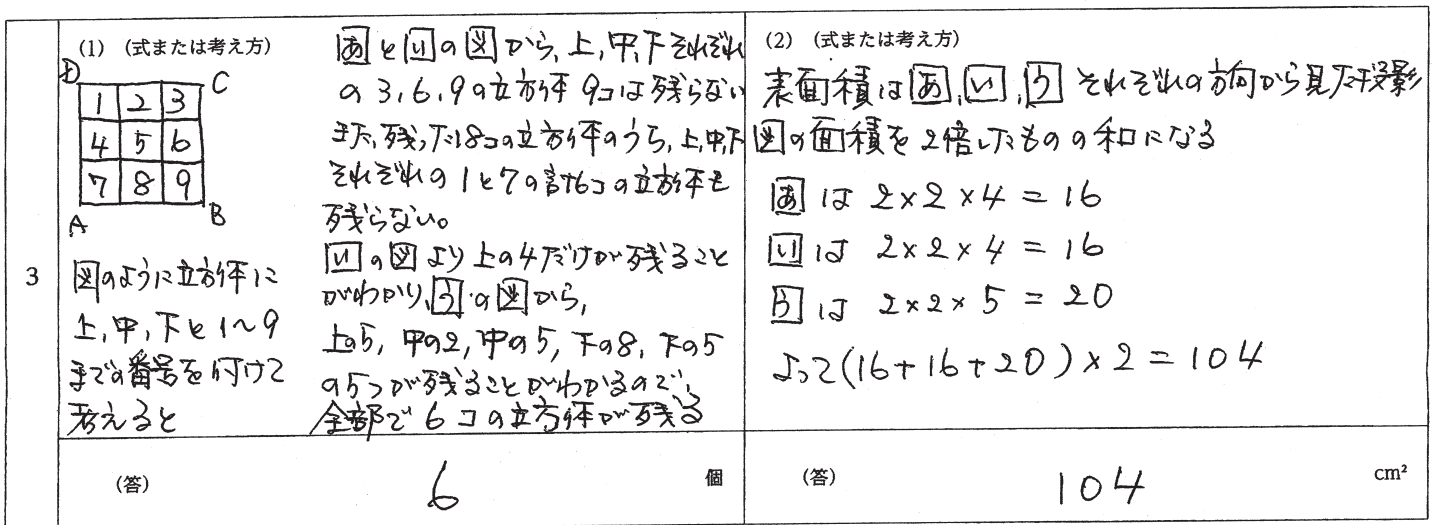 3
(1) (式または考え方)
D
C
1 2 3
4 5 6
7 8 9
A
B
図のように立方体に
上,中,下と1〜9
までの番号を付けて
考えると
あといの図から,上,中,下それぞれ
の3,6,9の立方体9コは残らない
また,残った18コの立方体のうち,上,中,下
それぞれの1と7の計6コの立方体も
残らない。
いの図より上の4だけが残ること
がわかり,うの図から,
上の5,中の2,中の5,下の8,下の5
の5つが残ることがわかるので,
全部で6コの立方体が残る
(答) 6 個
(2) (式または考え方)
表面積はあ,い,うそれぞれの方向から見た投影
図の面積を2倍したものの和になる
あは 2×2×4=16
いは 2×2×4=16
うは 2×2×5=20
よって(16+16+20)×2=104
(答) 104 cm²